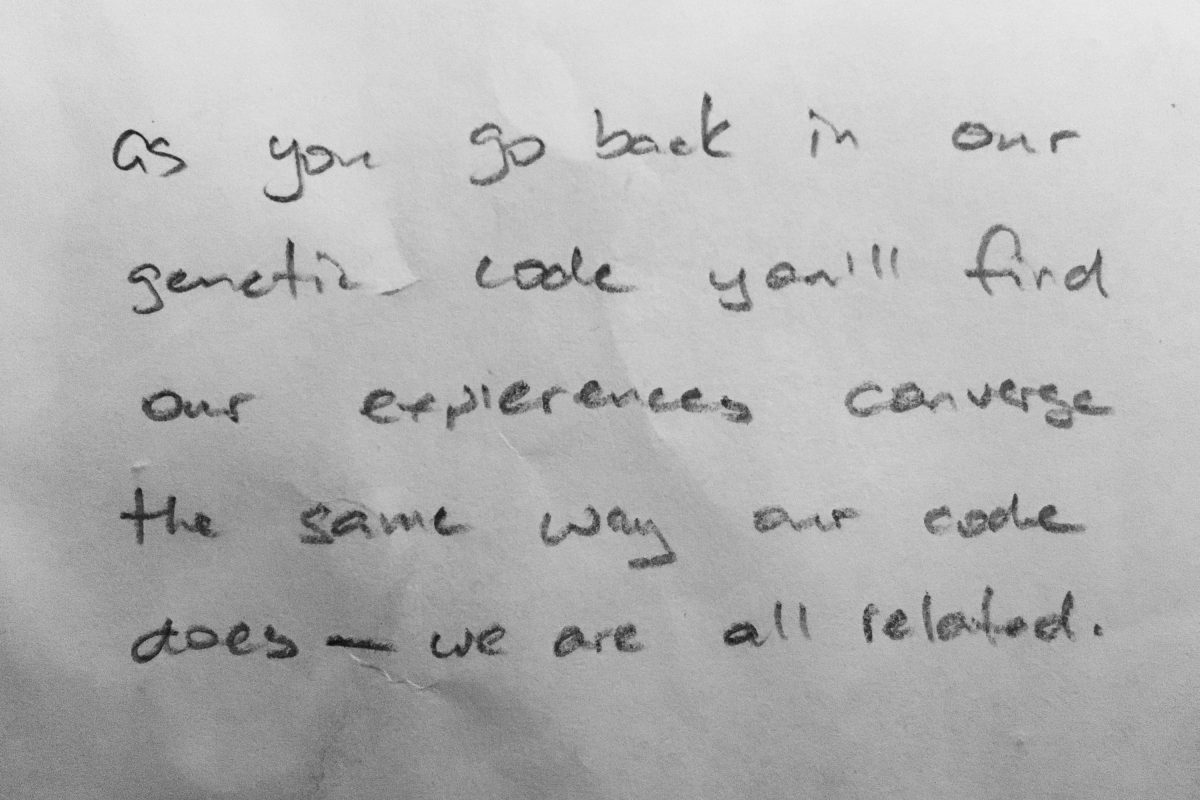 as you go back in our
genetic code you'll find
our expierences converge
the same way our code
does — we are all related.